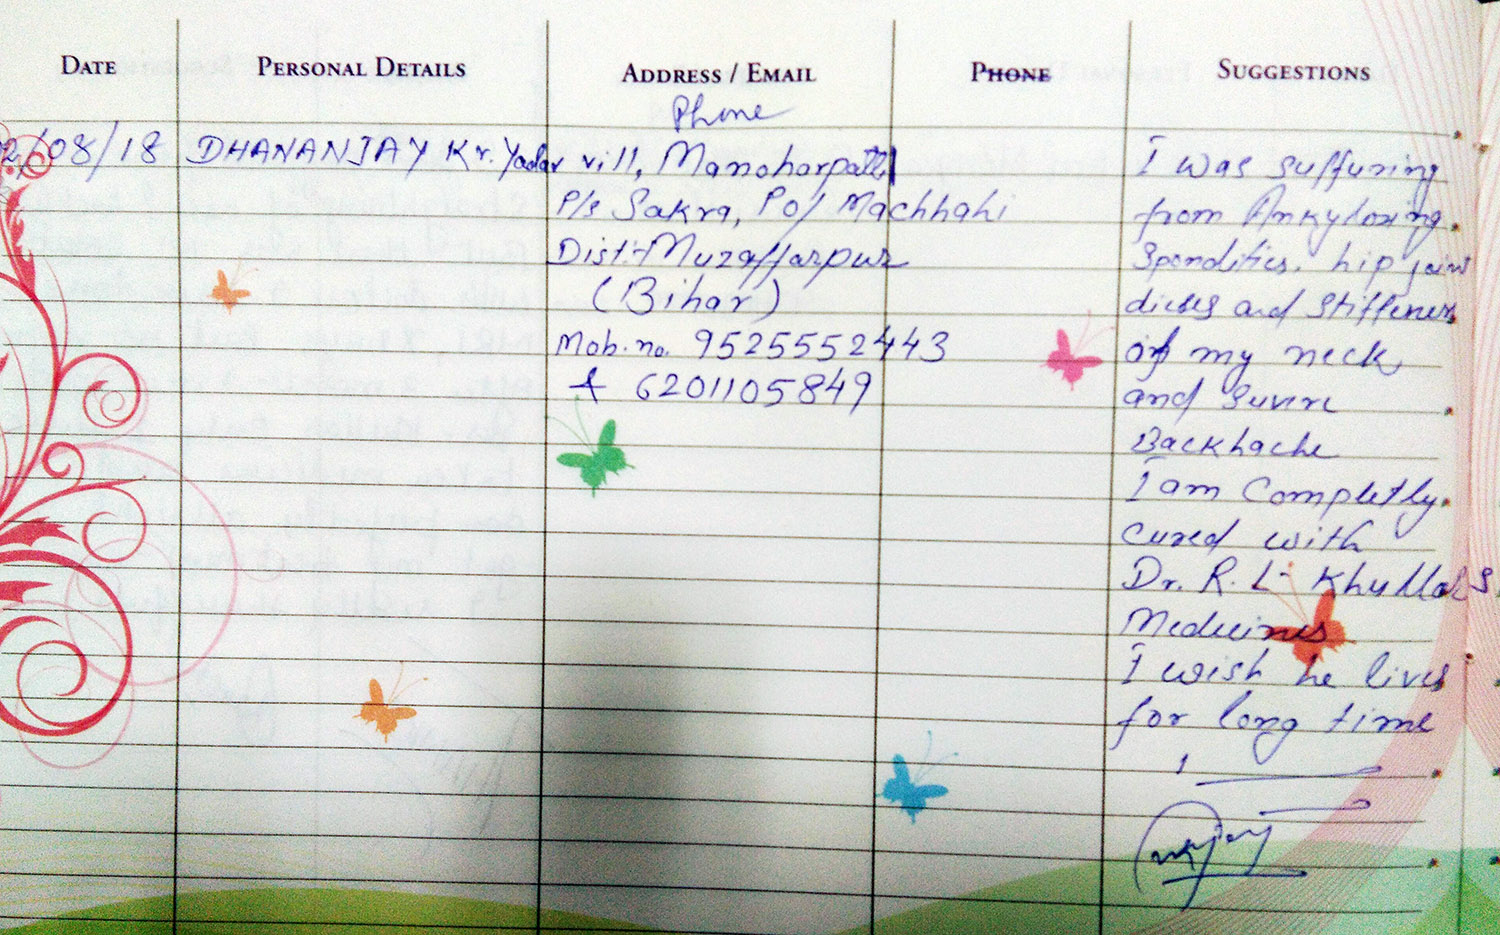 DATE PERSONAL DETAILS ADDRESS / EMAIL PHONE SUGGESTIONS
Phone
2/08/18 DHANANJAY Kr. Yadav vill, Manoharpatti
P/s Sakra, Po/ Machhahi
Dist:- Muzaffarpur
(Bihar)
Mob. no. 9525552443
+ 6201105849
I was suffuring
from Ankyloxing.
Sponditics. hip joint
dicies and stiffenes
of my neck
and Suvere
Backhache
I am Completly.
cured with
Dr. R. L Khullar's
Medicines
I wish he lives
for long time